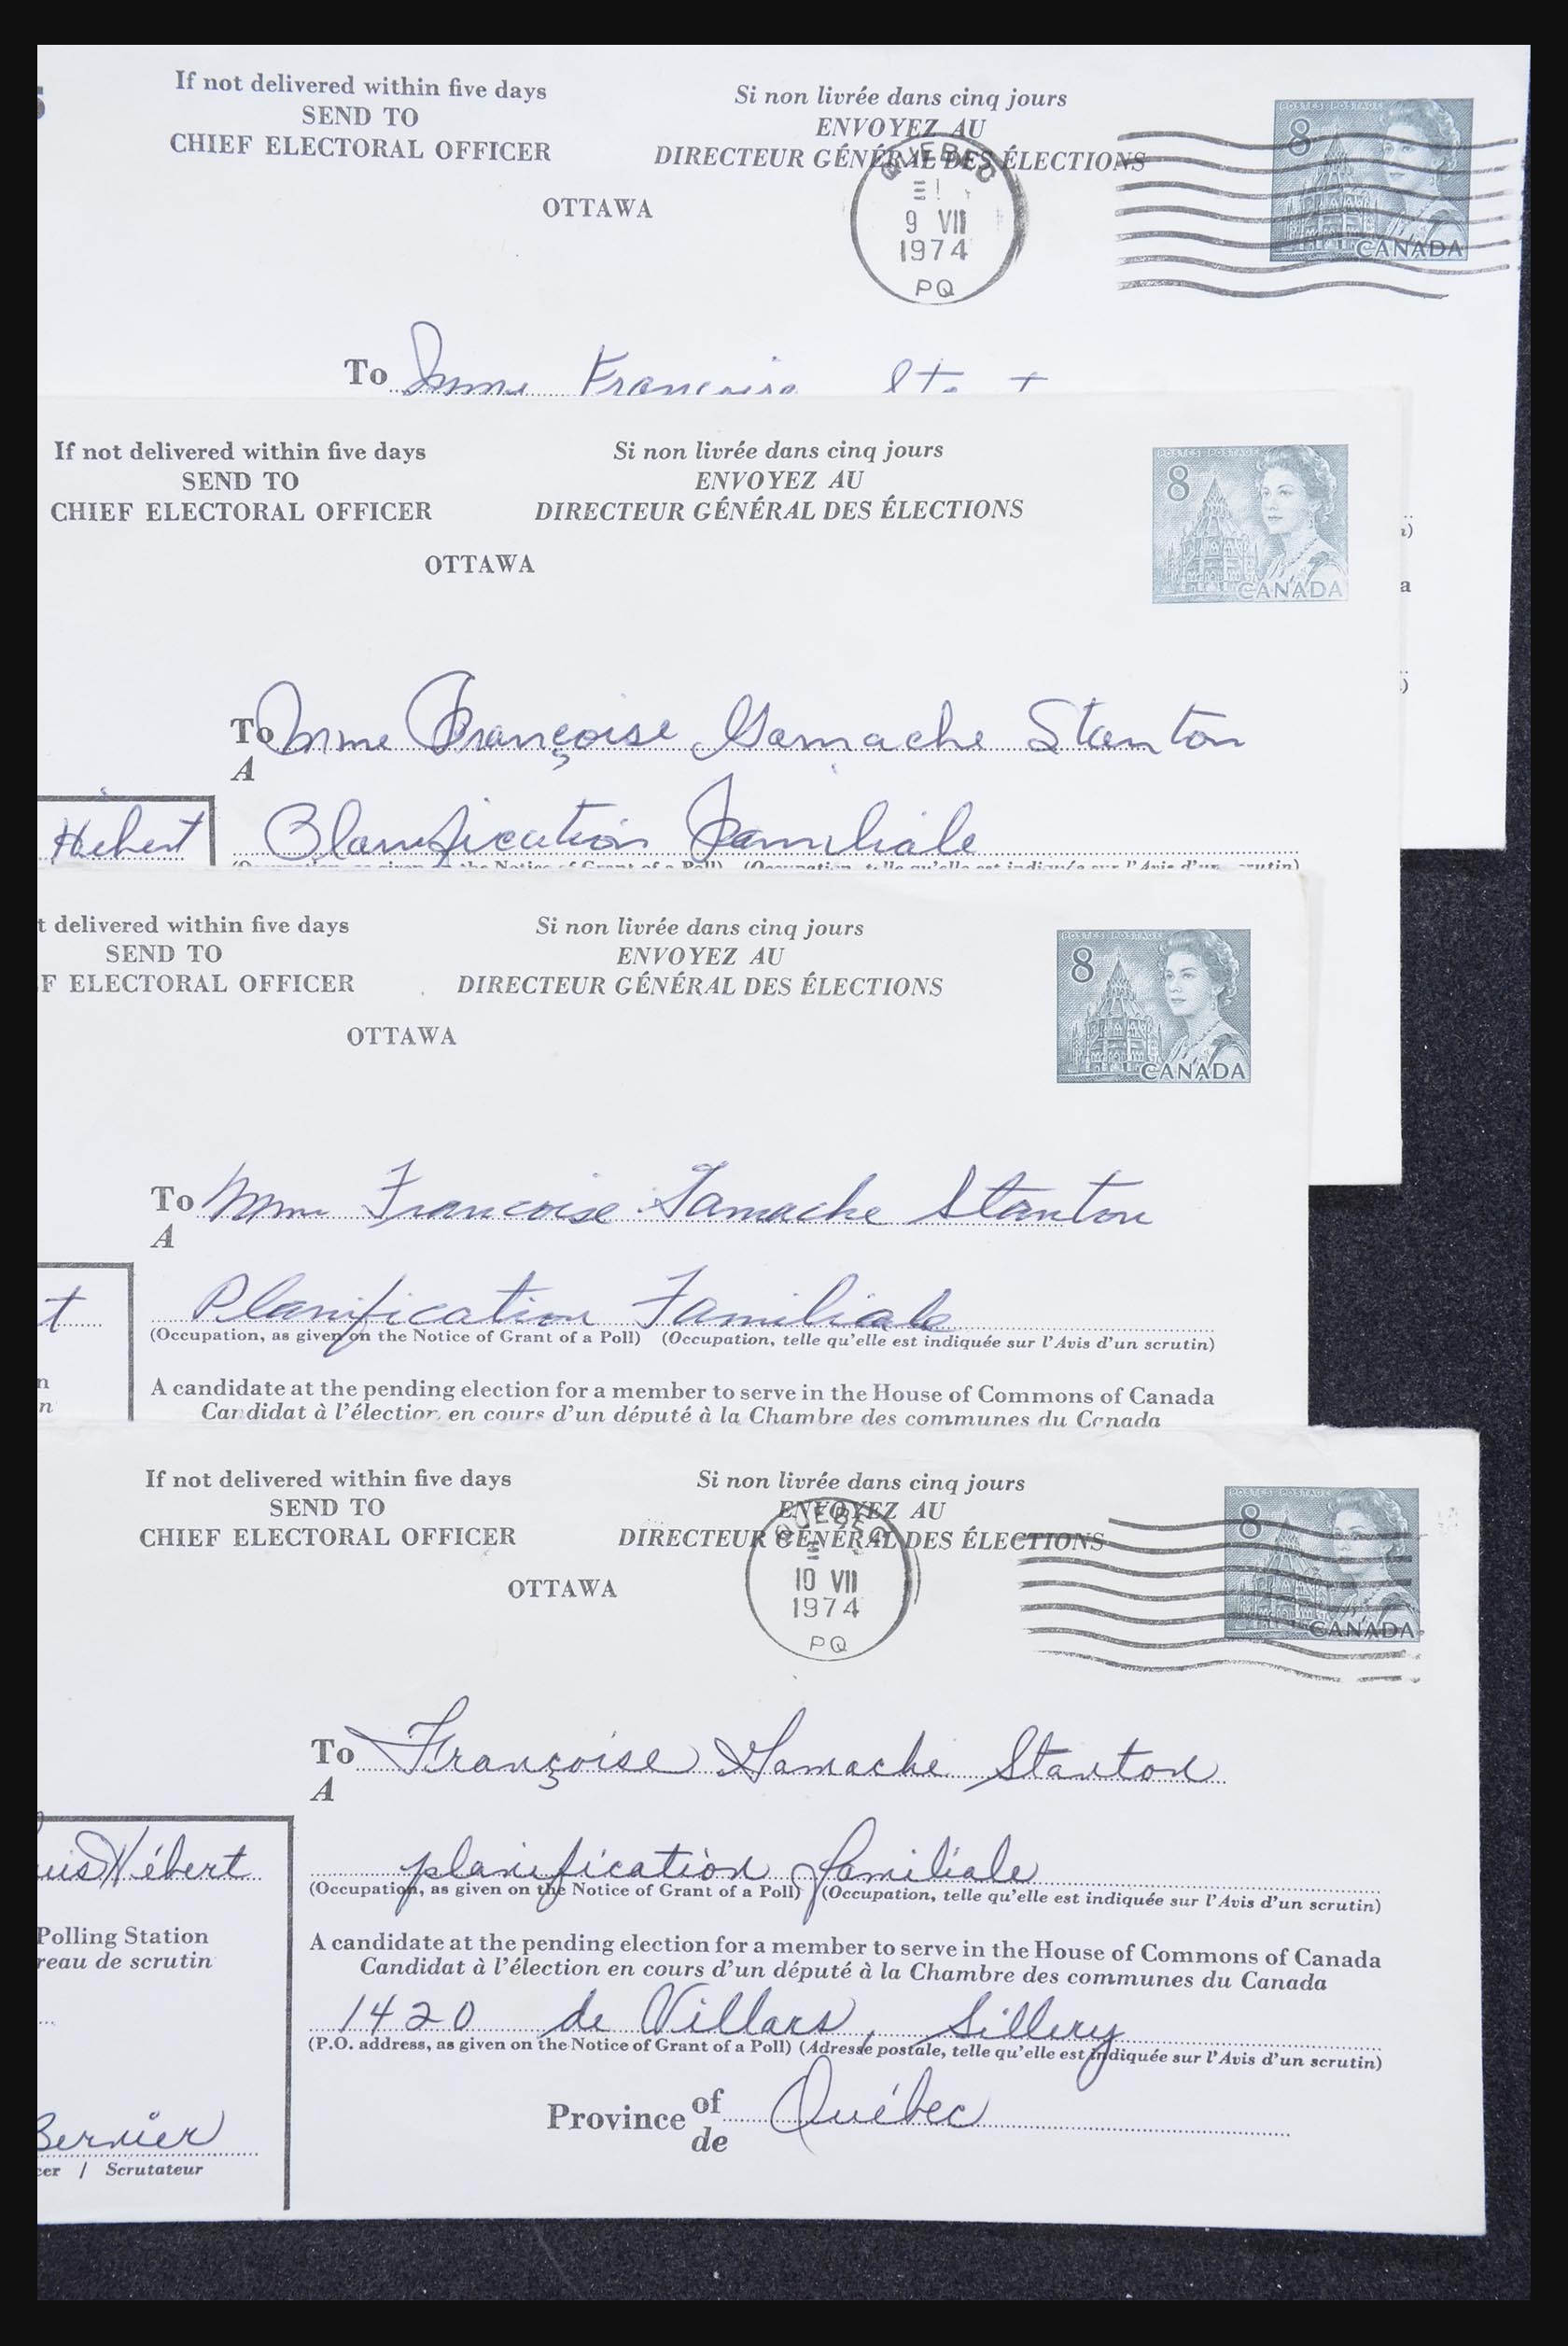 If not delivered within five days
SEND TO
CHIEF ELECTORAL OFFICER
Si non livrée dans cinq jours
ENVOYEZ AU
DIRECTEUR GÉNÉRAL DES ÉLECTIONS
OTTAWA
POSTES POSTAGE
8
CANADA
QUEBEC
9 VII
1974
PQ
To Mme Francoise
If not delivered within five days
SEND TO
CHIEF ELECTORAL OFFICER
Si non livrée dans cinq jours
ENVOYEZ AU
DIRECTEUR GÉNÉRAL DES ÉLECTIONS
OTTAWA
POSTES POSTAGE
8
CANADA
To Mme Françoise Gamache Stanton
A
Hébert
Planification Familiale
(Occupation, as given on the Notice of Grant of a Poll) (Occupation, telle qu'elle est indiquée sur l'Avis d'un scrutin)
t delivered within five days
SEND TO
F ELECTORAL OFFICER
Si non livrée dans cinq jours
ENVOYEZ AU
DIRECTEUR GÉNÉRAL DES ÉLECTIONS
OTTAWA
POSTES POSTAGE
8
CANADA
To Mme Francoise Gamache Stanton
A
t
Planification Familiale
(Occupation, as given on the Notice of Grant of a Poll) (Occupation, telle qu'elle est indiquée sur l'Avis d'un scrutin)
n
n
A candidate at the pending election for a member to serve in the House of Commons of Canada
Candidat à l'élection en cours d'un député à la Chambre des communes du Canada
If not delivered within five days
SEND TO
CHIEF ELECTORAL OFFICER
Si non livrée dans cinq jours
ENVOYEZ AU
DIRECTEUR GÉNÉRAL DES ÉLECTIONS
OTTAWA
POSTES POSTAGE
8
CANADA
QUEBEC
10 VII
1974
PQ
To Françoise Gamache Stanton
A
uis Hébert
planification familiale
(Occupation, as given on the Notice of Grant of a Poll) (Occupation, telle qu'elle est indiquée sur l'Avis d'un scrutin)
Polling Station
reau de scrutin
A candidate at the pending election for a member to serve in the House of Commons of Canada
Candidat à l'élection en cours d'un député à la Chambre des communes du Canada
1420 de Villars, Sillery
(P.O. address, as given on the Notice of Grant of a Poll) (Adresse postale, telle qu'elle est indiquée sur l'Avis d'un scrutin)
Province of Québec
de
Bernier
cer / Scrutateur